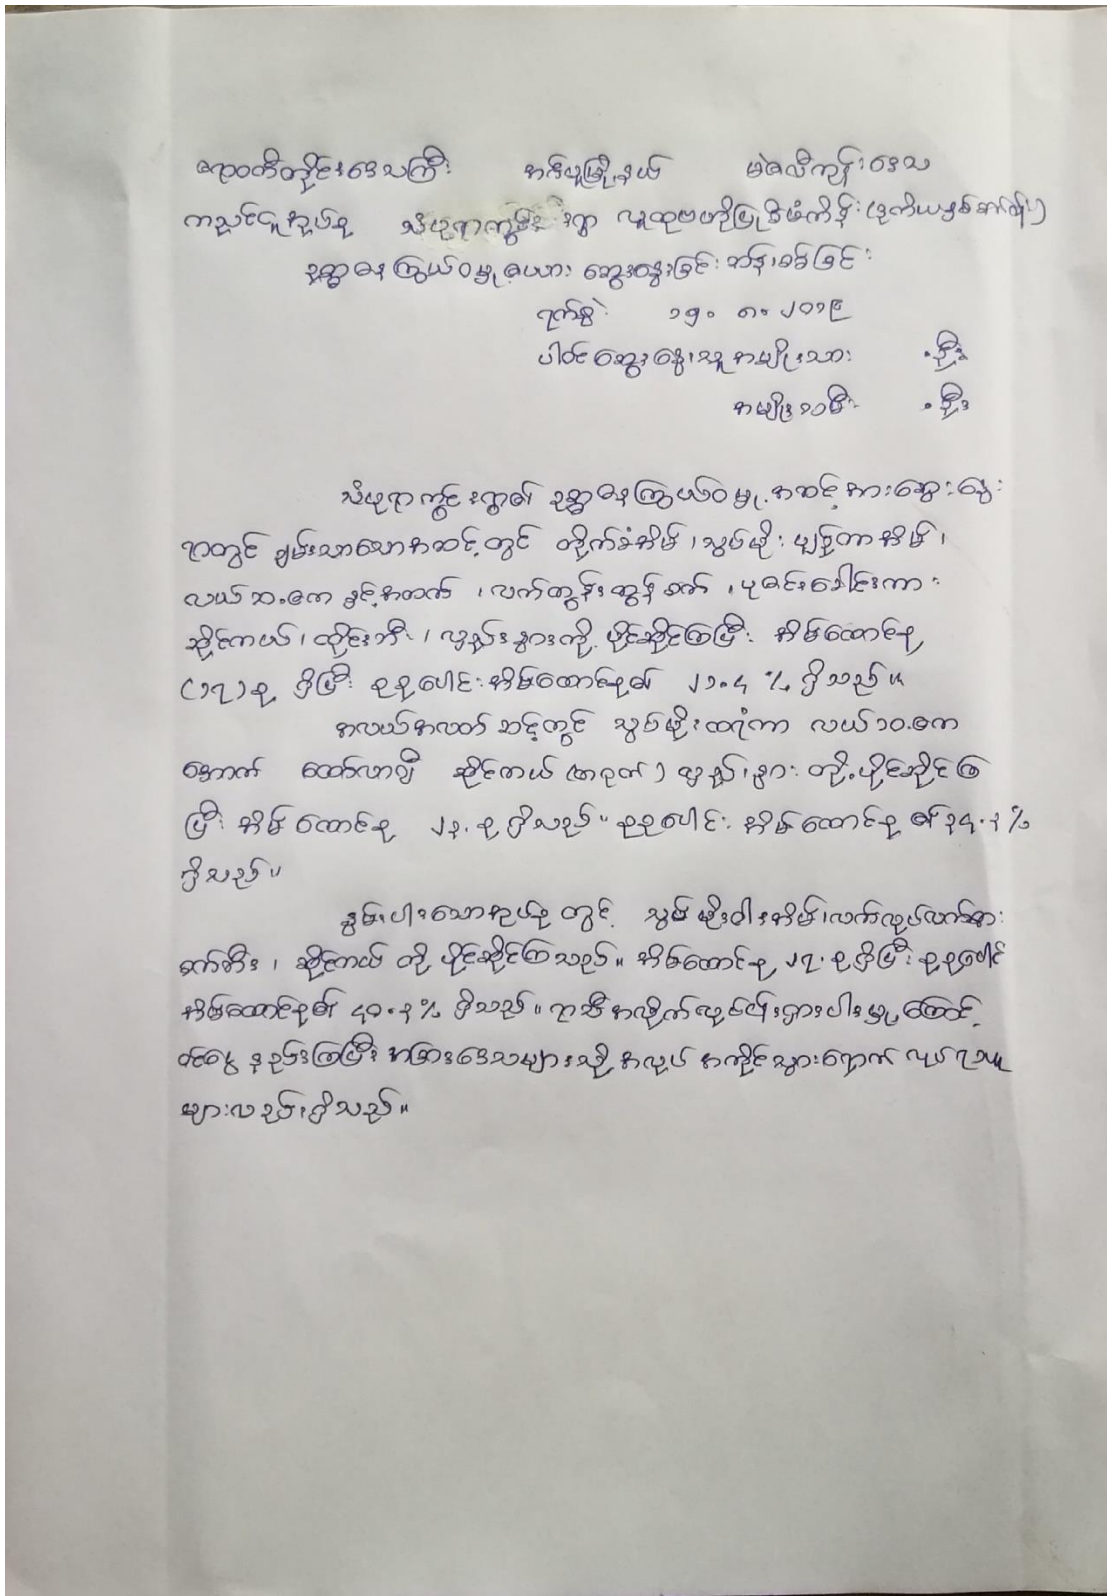 ဧရာဝတီတိုင်းဒေသကြီး အင်္ဂပူမြို့နယ် မဲဇလီကျွန်းဒေသ
ကညင်ငူအုပ်စု သံပုရာကွင်းရွာ လူထုဗဟိုပြုစီမံကိန်း (ဒုတိယနှစ်စက်ဝန်း)
ဥစ္စာဓနကြွယ်ဝမှုဇယား ဆွေးနွေးခြင်း ဘန်းခစ်ခြင်း
ရက်စွဲ ၁၅.၈.၂၀၁၉
ပါဝင်ဆွေးနွေးသူအမျိုးသား . ဦး
အမျိုးသမီး . ဦး
သံပုရာကွင်းရွာ၏ ဥစ္စာဓနကြွယ်ဝမှု အဆင့်အားဆွေးနွေး
ရာတွင် ချမ်းသာသောအဆင့်တွင် တိုက်ခံအိမ်၊ သွပ်မိုး ပျဉ်ကာအိမ်၊
လယ် ဧက နှင့်အထက်၊ လက်တွန်းထွန်စက်၊ ပုခင်းခေါင်းကား
ဆိုင်ကယ်၊ ထိုင်းဘီး၊ လှည်းနွားတို့ ပိုင်ဆိုင်ကြပြီး အိမ်ထောင်စု
(၁၇) စု ရှိပြီး စုစုပေါင်းအိမ်ထောင်စု၏ ၂၁.၄ % ရှိသည်။
အလယ်အလတ်ဆင့်တွင် သွပ်မိုးထရံကာ လယ် ၁၀ ဧက
အောက် ထော်လာဂျီ ဆိုင်ကယ် (တရုတ်) လှည်းနွား တို့ ပိုင်ဆိုင်ကြ
ပြီး အိမ်ထောင်စု ၂၃ စု ရှိသည်။ စုစုပေါင်း အိမ်ထောင်စု ၏ %
ရှိသည်။
နွမ်းပါးသောအုပ်စု တွင် သွပ်မိုးဝါးအိမ်၊ လက်လုပ်လက်စား
စက်ဘီး၊ ဆိုင်ကယ် တို့ ပိုင်ဆိုင်ကြသည်။ အိမ်ထောင်စု ၂၇ စု ရှိပြီး စုစုပေါင်း
အိမ်ထောင်စု၏ % ရှိသည်။ ရာသီအလိုက်လုပ်ငန်းရှားပါးမှုကြောင့်
ဝင်ငွေ နည်းကြပြီး အခြားဒေသများသို့ အလုပ် အကိုင်သွားရောက် လုပ်ရသူ
များလည်းရှိသည်။